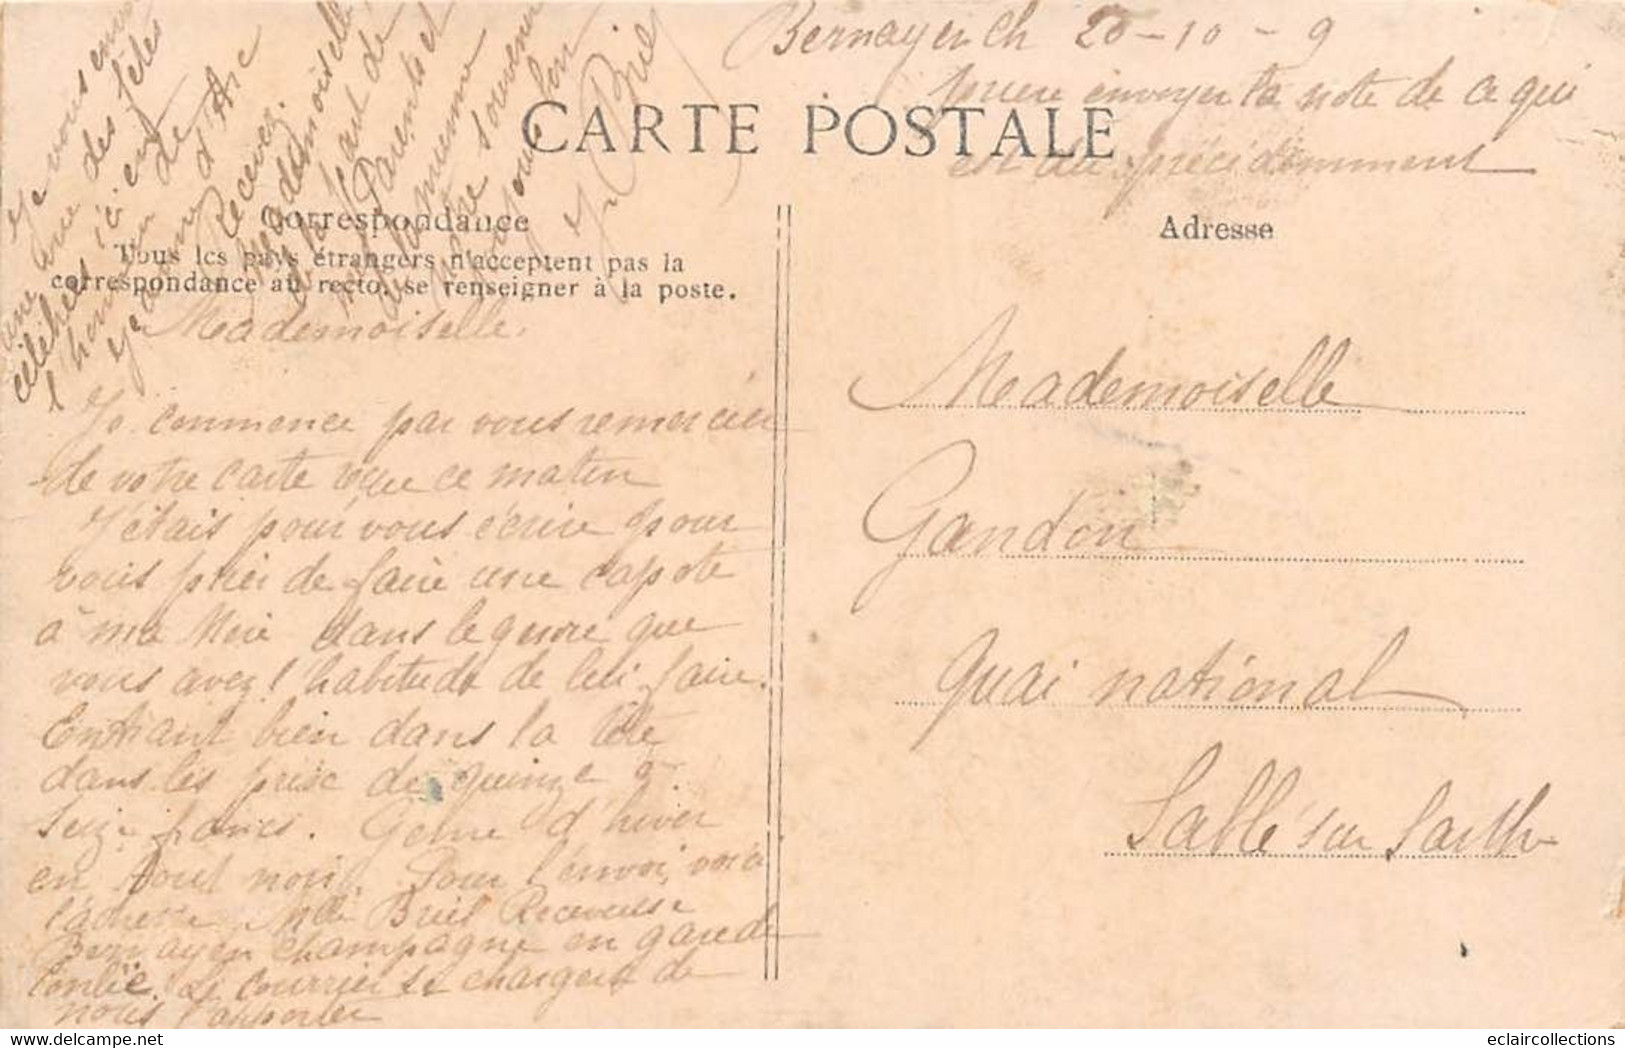 Bernay en Ch 20-10-9
prière envoyer la note de ce qui
est dû précédemment
CARTE POSTALE
Correspondance
Tous les pays étrangers n'acceptent pas la
correspondance au recto, se renseigner à la poste.
Adresse
Mademoiselle,
Je commence par vous remercier
de votre carte reçue ce matin
J'étais pour vous écrire pour
vous prier de faire une capote
à ma Mère dans le genre que
vous avez l'habitude de lui faire.
Entrant bien dans la tête
dans les prix de quinze à
seize francs. Genre d'hiver
en tout noir. Pour l'envoi, voici
l'adresse Mlle Breil Receveuse
Bernay en Champagne en gare de
Conlie. Le courrier se chargera de
nous l'apporter
Je vous envoie
une vue des fêtes
célébrées ici en
l'honneur de
Je d'Arc
Recevez,
Mademoiselle,
de la part de
mes Parents et
de la mienne
notre souvenir
Y. Breil
Mademoiselle
Gandon
quai national
Sablé sur Sarthe
eclaircollections